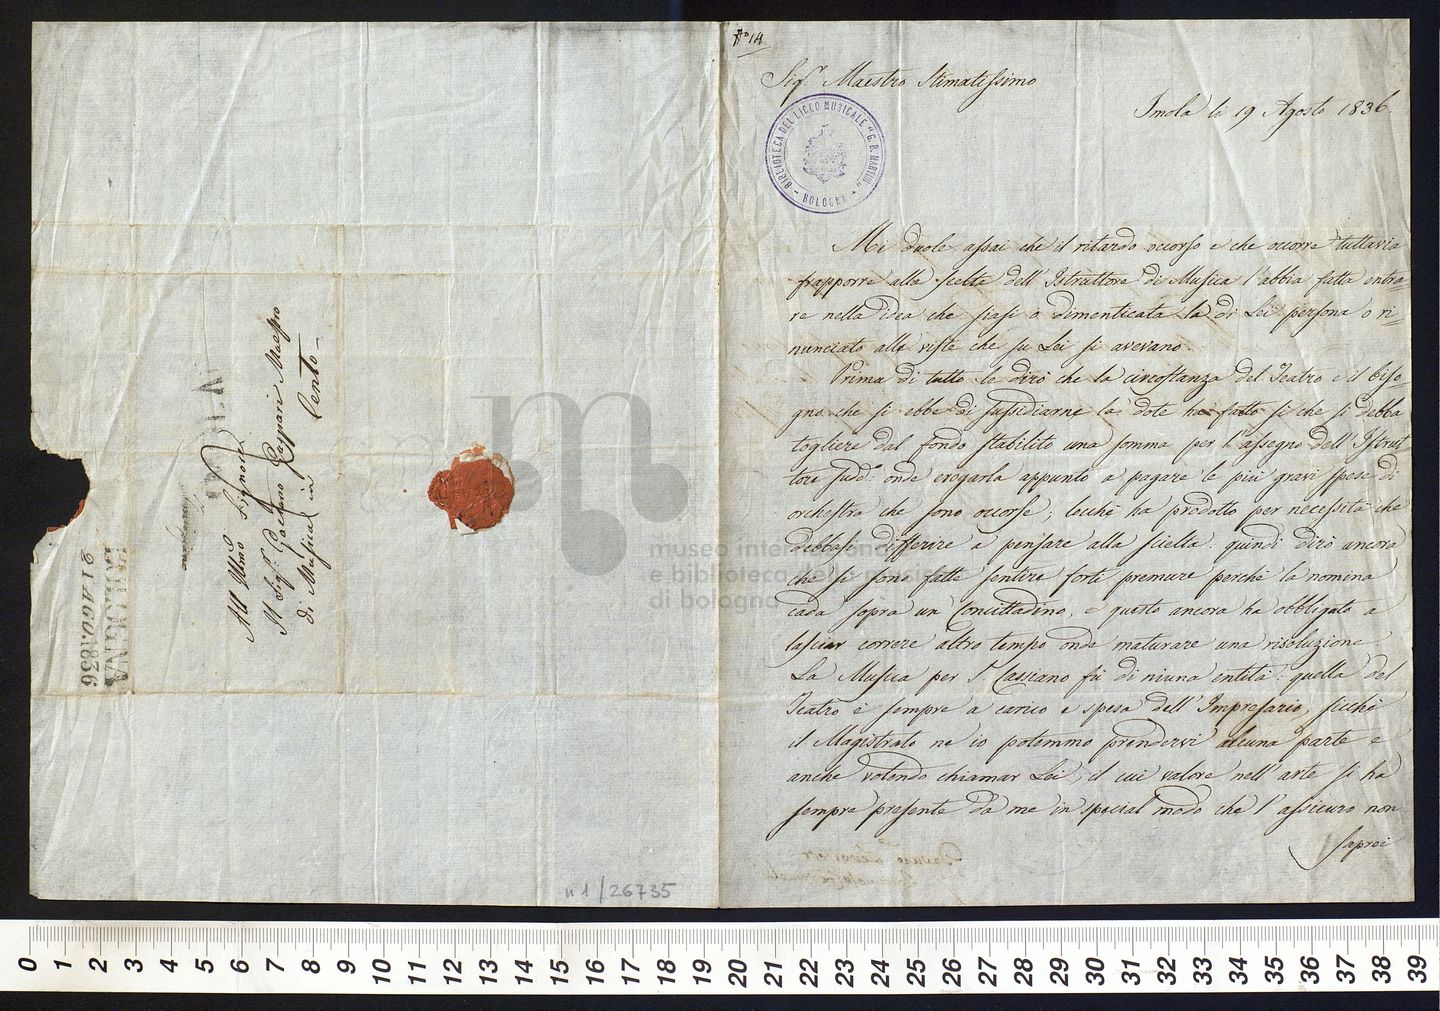 IMOLA
All' Ornmo Signore
Il Sigr. Gaetano Gaspari Maestro
di Musica in
Cento
BOLOGNA
21 AGO. 1836
n 1/26735
No 14
Sigr. Maestro Stimatissimo
Imola li 19 Agosto 1836.
BIBLIOTECA DEL LICEO MUSICALE "G. B. MARTINI" - BOLOGNA -
Mi duole assai che il ritardo occorso e che occorre tuttavia
frapporre alla scelta dell' Istruttore di Musica l'abbia fatta entra-
re nella idea che siasi o dimenticata la di Lei persona o ri-
nunciato alle viste che su Lei si avevano.
Prima di tutto le dirò che la circostanza del Teatro e il biso-
gno che si ebbe di sussidiarne la dote ha fatto sì che si debba
togliere dal fondo stabilito una somma per l'assegno dell' Istrut-
tore sudd. onde erogarla appunto a pagare le più gravi spese di
orchestra che sono occorse; locchè ha prodotto per necessità che
debbasi differire a pensare alla scielta: quindi dirò ancora
che si sono fatte sentire forti premure perchè la nomina
cada sopra un Concittadino, e questo ancora ha obbligato a
lasciar correre altro tempo onde maturare una risoluzione.
La Musica per S. Cassiano fù di niuna entità: quella del
Teatro è sempre a carico e spesa dell' Impresario, sicchè
il Magistrato ne io potemmo prendervi alcuna parte e
anche volendo chiamar Lei, il cui valore nell' arte si ha
sempre presente da me in special modo che l' assicuro non
saprei
museo internazionale
e biblioteca della musica
di bologna
0 1 2 3 4 5 6 7 8 9 10 11 12 13 14 15 16 17 18 19 20 21 22 23 24 25 26 27 28 29 30 31 32 33 34 35 36 37 38 39